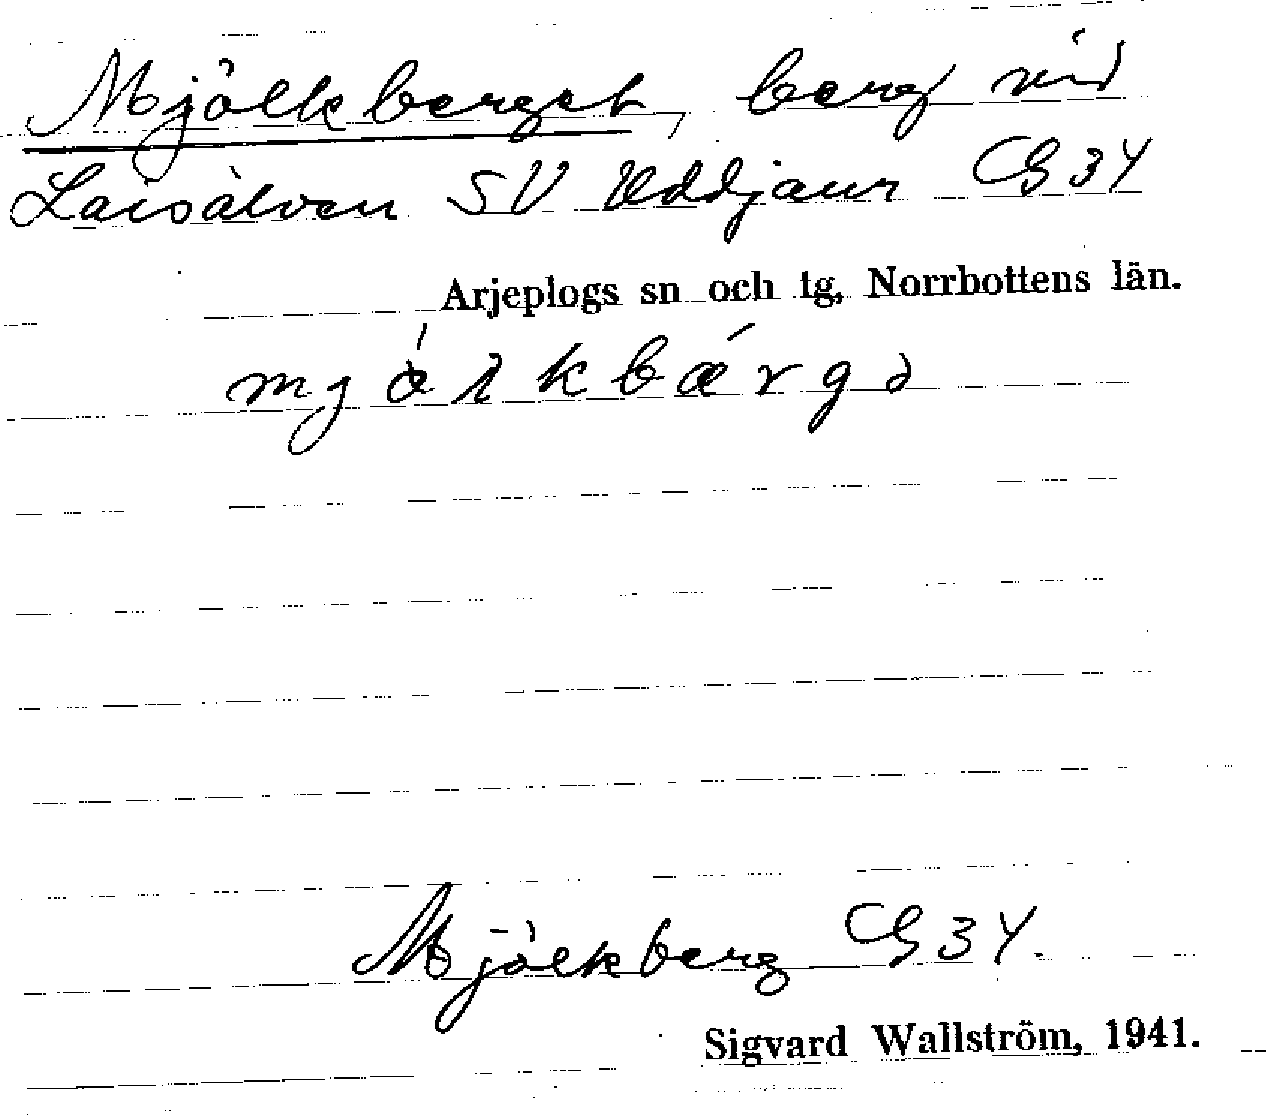 Mjölkberget, berg vid
Laisälven SV Uddjaur G34
Arjeplogs sn och tg, Norrbottens län.
mjö́lkbǽrgə
Mjölkberg G34.
Sigvard Wallström, 1941.